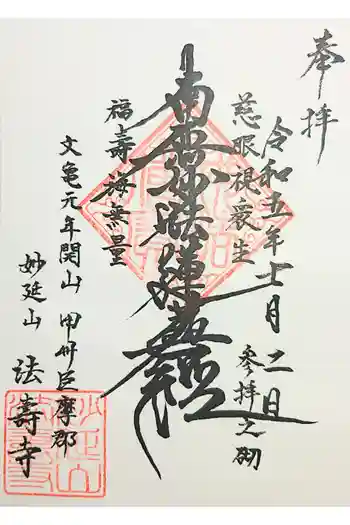 奉拝
令和五年七月二日
参拝之砌
慈眼視衆生
南無妙法蓮華経
福寿海無量
文亀元年開山 甲州巨摩郡
妙延山 法壽寺